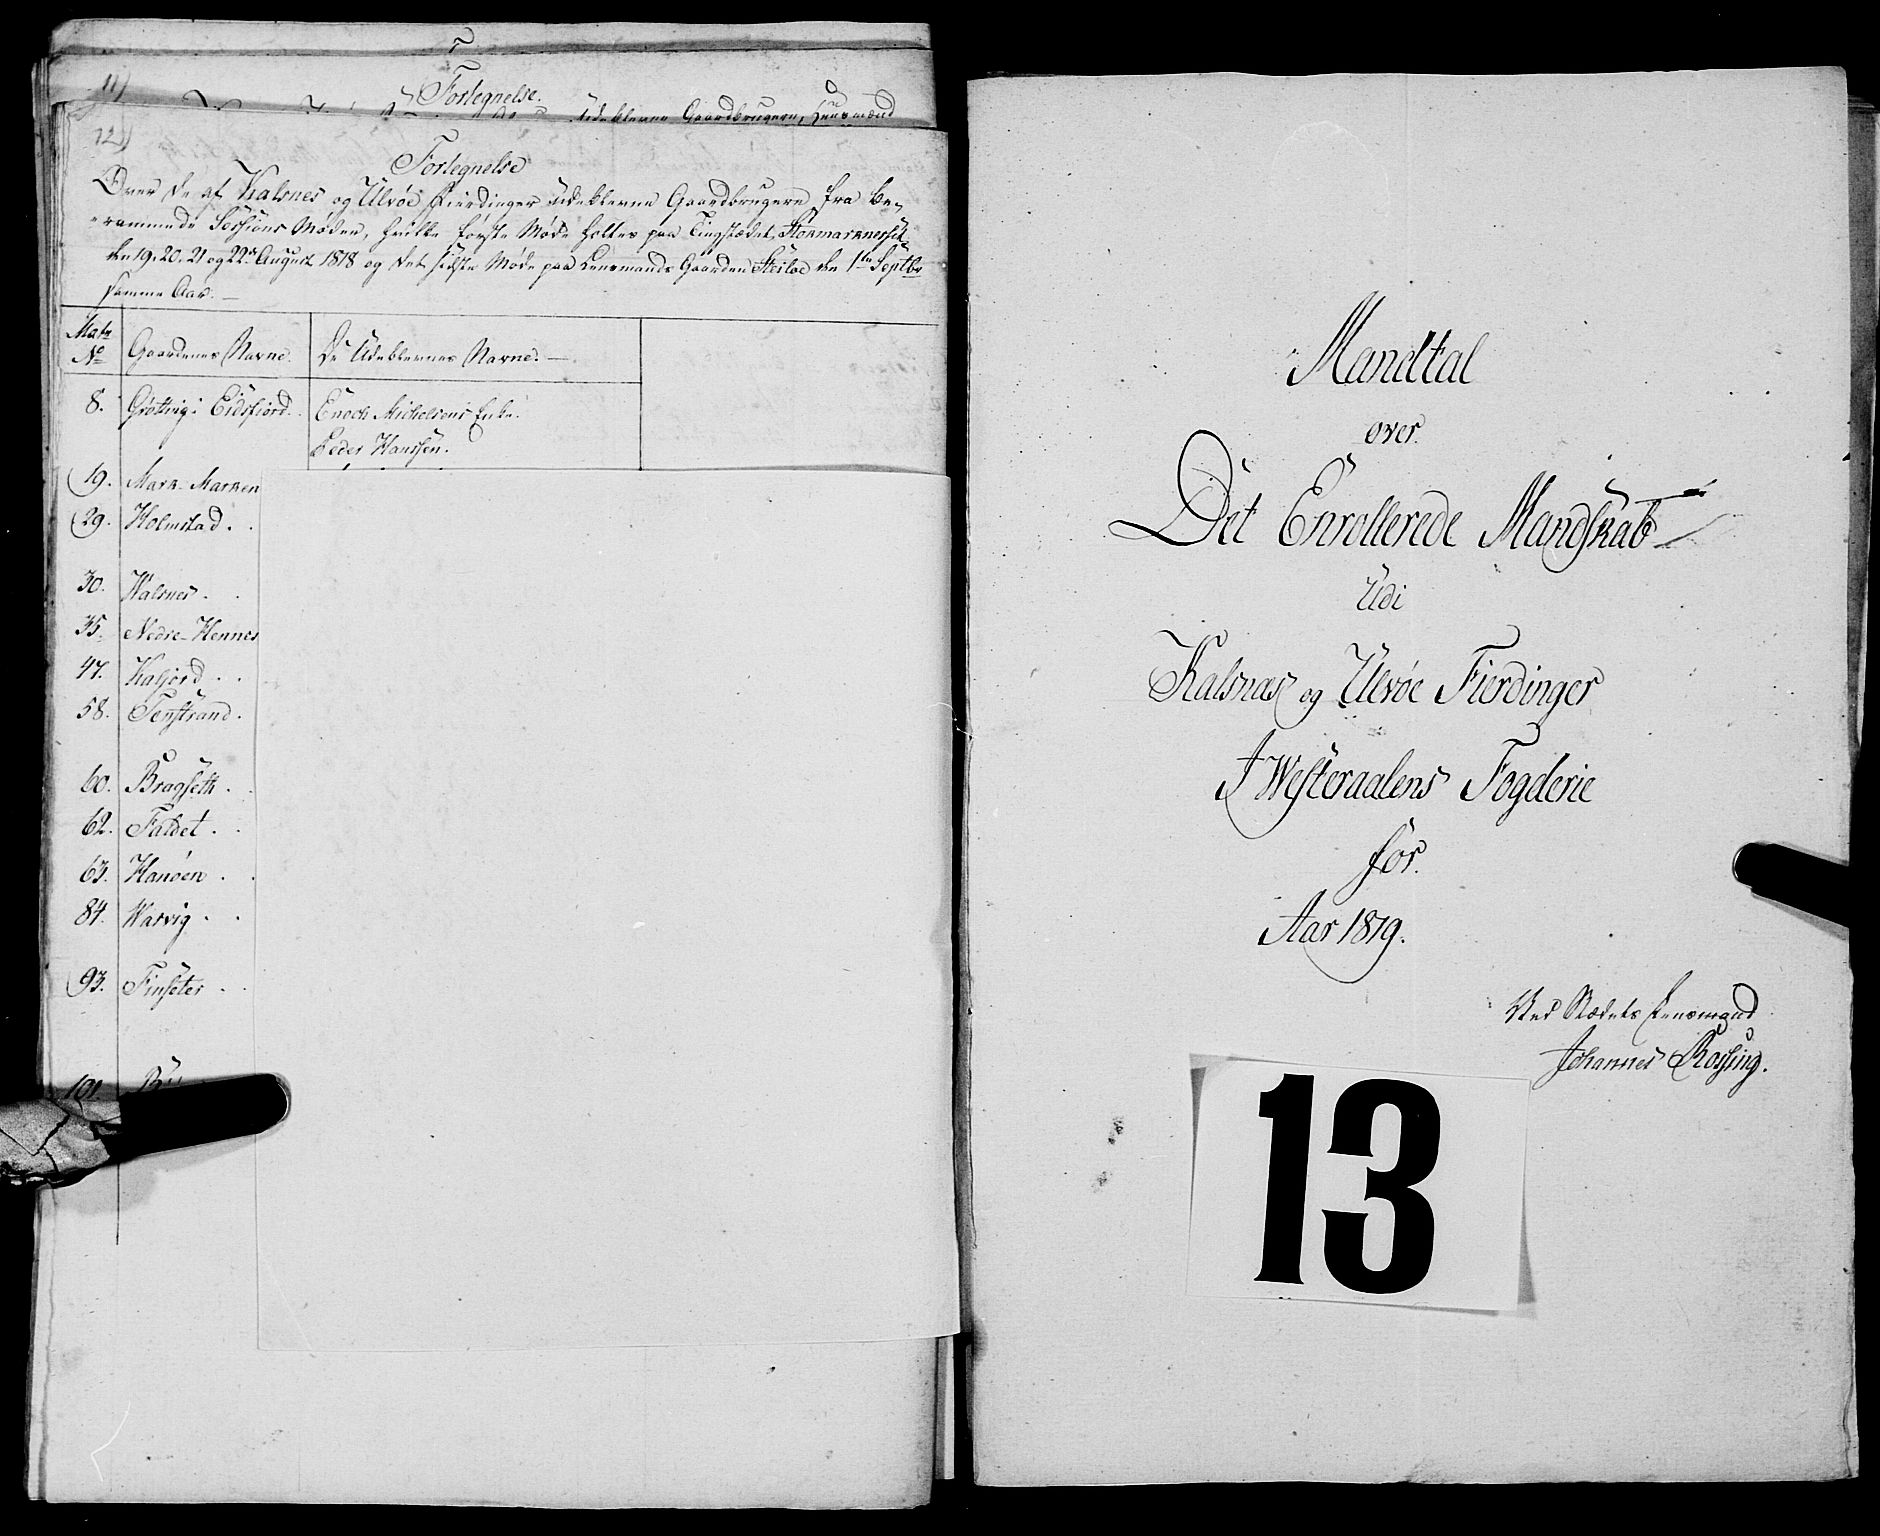 11)
Fortegnelse.
Udeblevne Gaardbrugere, Huusmænd
12)
Fortegnelse
Over de af Kalsnes og Ulvøe Fierdinger Udeblevne Gaardbrugere fra be-
rammende Sessions Møden, hvilke første Møde holtes paa Tingstædet Stokmarknes
den 19, 20, 21 og 22de August 1818 og det sidste Møde paa Lensmands Gaarden Steiløe den 1te Septbr
samme Aar. —
Matr No Gaardenes Navne. De Udeblevnes Navne. —
8. Grøtting i Eidsfiord. Enoch Michelsens Enke.
Peder Hanssen.
19. Mark-Marken
29. Holmstad . .
30. Kalsnes . .
35. Nedre-Hennes
47. Kaljord . .
58. Tenstrand .
60. Bragseth . .
62. Faldet . .
63. Hanøen . .
84. Warvig . .
93. Finsæter . .
101.
Mandtal
over
Det Enrollerede Mandskab
Udi
Kalsnæs og Ulvøe Fierdinger
I Westeraalens Fogderie
for
Aar 1819.
Ved Stædets Lensmand
Johannes Rossing.
13